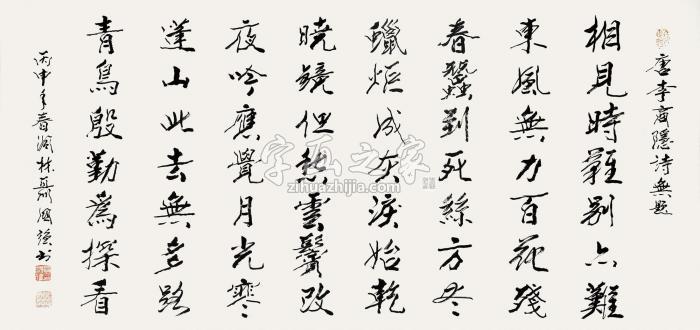 唐李商隱詩無題
相見時難別亦難
東風無力百花殘
春蠶到死絲方尽
蠟炬成灰淚始乾
曉鏡但愁雲鬢改
夜吟應覺月光寒
蓬山此去無多路
青鳥殷勤爲探看
丙申年春潤林聶國强书
字画之家
zihuazhijia.com